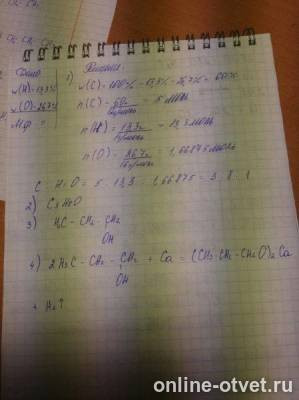 Дано
w(H)=13,3%
w(O)=26,7%
Мф - ?
Решение.
1) w(C) = 100% - 13,3% - 26,7% = 60%
n(C) = 60г / 12г/моль = 5 моль
n(H) = 13,3г / 1г/моль = 13,3 моль
n(O) = 26,7г / 16г/моль = 1,66875 моль
C : H : O = 5 : 13,3 : 1,66875 = 3 : 8 : 1
2) C3H8O
3) H3C - CH2 - CH2
OH
4) 2H3C - CH2 - CH2 + Ca = (CH3-CH2-CH2O)2Ca
OH
+ H2↑
online-otvet.ru